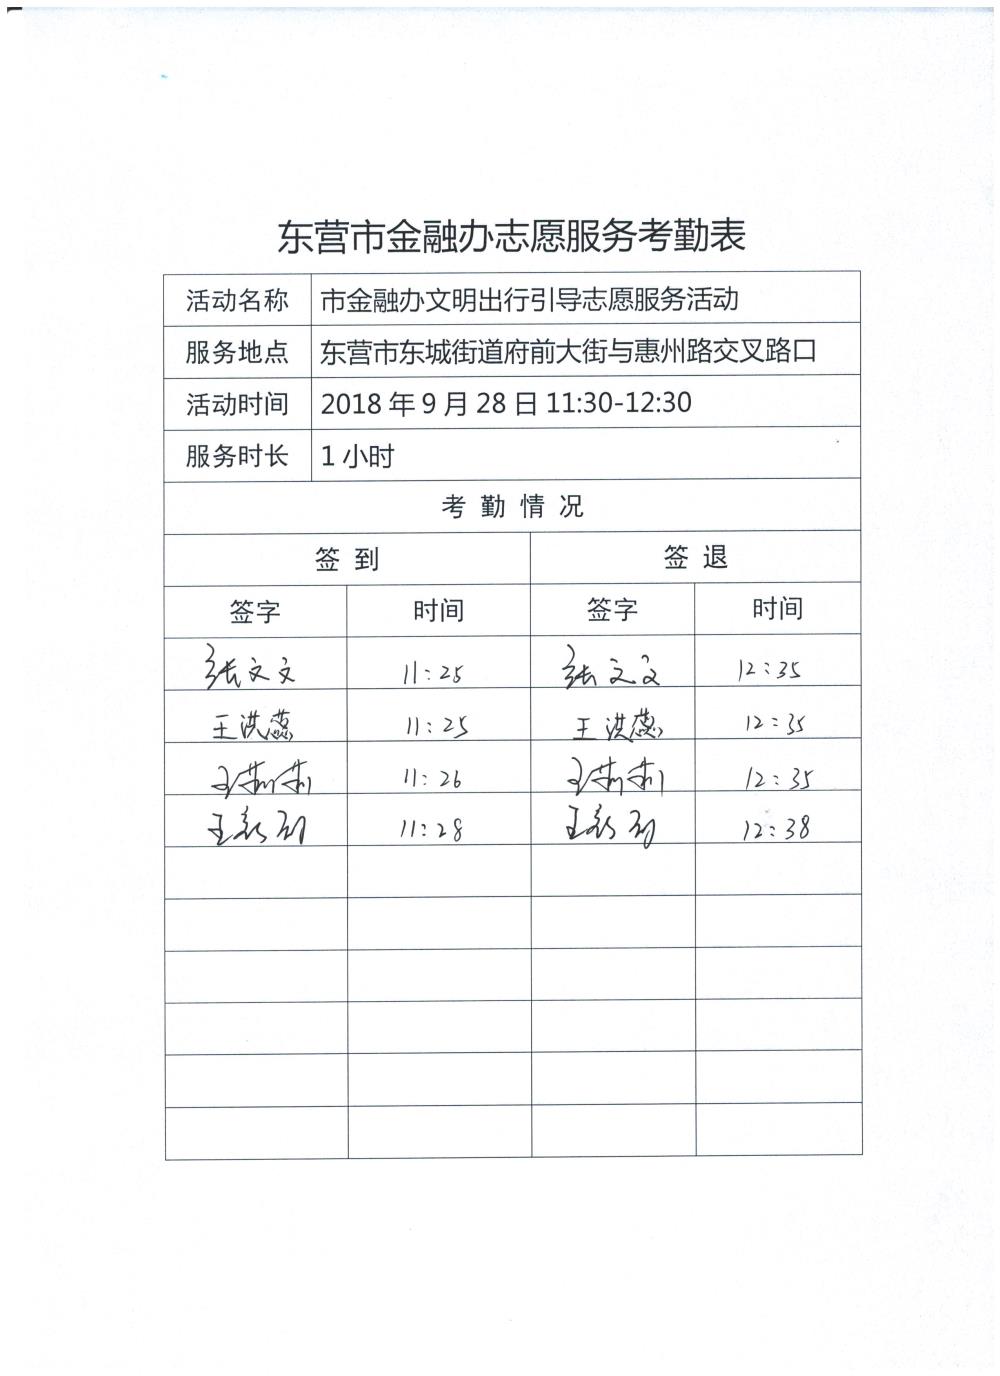 东营市金融办志愿服务考勤表
活动名称 市金融办文明出行引导志愿服务活动
服务地点 东营市东城街道府前大街与惠州路交叉路口
活动时间 2018年9月28日11:30-12:30
服务时长 1小时
考勤情况
签到 签退
签字 时间 签字 时间
张文文 11:25 张文文 12:35
王洪蕊 11:25 王洪蕊 12:35
王莉莉 11:26 王莉莉 12:35
王 11:28 王 12:38